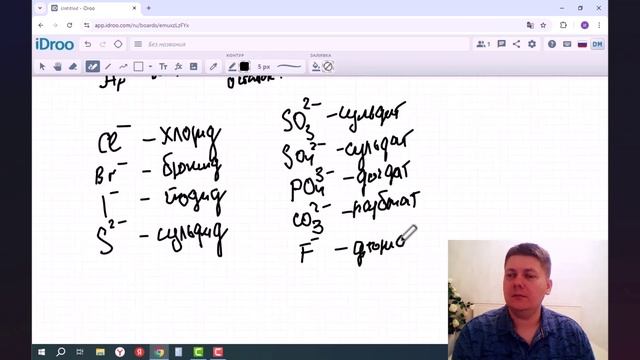 Untitled - iDroo
app.idroo.com/ru/boards/emuxzLzFYx
iDroo
Без названия
1
DM
КОНТУР
5 px
ЗАЛИВКА
Cl⁻ – хлорид
Br⁻ – бромид
I⁻ – йодид
S²⁻ – сульфид
SO₃²⁻ – сульфит
SO₄²⁻ – сульфат
PO₄³⁻ – фосфат
CO₃²⁻ – карбонат
F⁻ – фторио